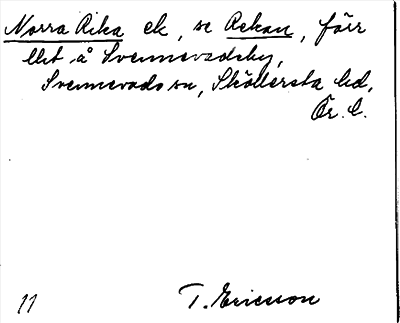 Norra Rika ek, se Rekan, förr
llet å Svennevadsby,
Svennevads sn, Sköllersta hd,
Ör. l.
11 T. Ericsson